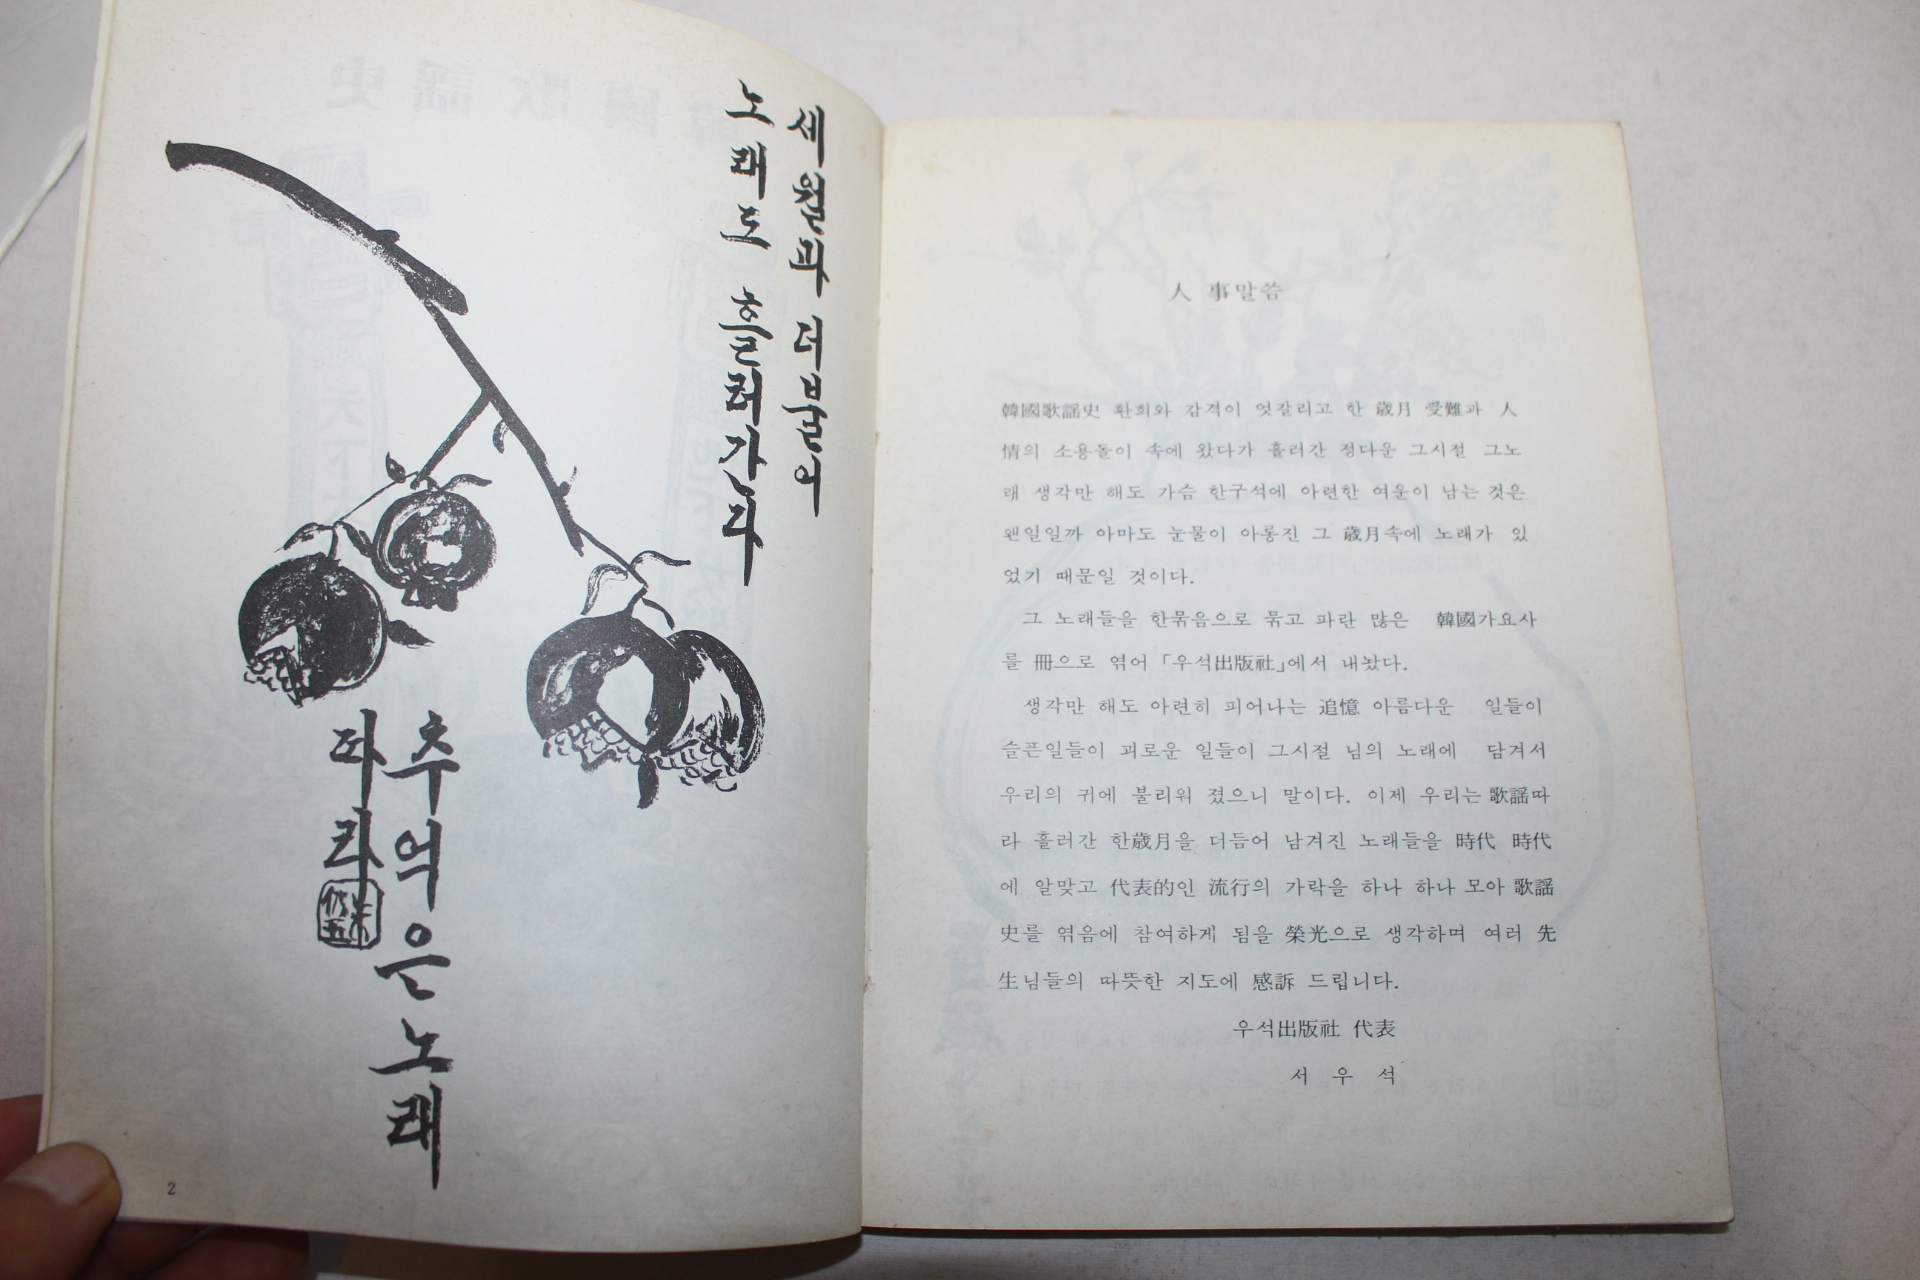 세월과 더불어
노래도 흘러간다
추억은 노래
따라
2
人事말씀
韓國歌謠史 환희와 감격이 엇갈리고 한 歲月 受難과 人
情의 소용돌이 속에 왔다가 흘러간 정다운 그시절 그노
래 생각만 해도 가슴 한구석에 아련한 여운이 남는 것은
왠일일까 아마도 눈물이 아롱진 그 歲月속에 노래가 있
었기 때문일 것이다.
그 노래들을 한묶음으로 묶고 파란 많은 韓國가요사
를 冊으로 엮어 「우석出版社」에서 내놨다.
생각만 해도 아련히 피어나는 追憶 아름다운 일들이
슬픈일들이 괴로운 일들이 그시절 님의 노래에 담겨서
우리의 귀에 불리워 졌으니 말이다. 이제 우리는 歌謠따
라 흘러간 한歲月을 더듬어 남겨진 노래들을 時代 時代
에 알맞고 代表的인 流行의 가락을 하나 하나 모아 歌謠
史를 엮음에 참여하게 됨을 榮光으로 생각하며 여러 先
生님들의 따뜻한 지도에 感訴 드립니다.
우석出版社 代表
서 우 석